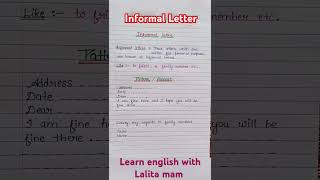 Informal Letter
Like :- to fri
member etc.
Patt
Address
Date
Dear
I am fine
you will be
fine there
Informal letter
Informal letters :- Those letters which are
written for personal purpose
are known as informal letters.
Like :- to friend, to family member etc.
Pattern / Format
Address
Date
Dear
I am fine here and I hope you will be
fine there
Convey my regards to family members
Yours
Name
Learn english with
Lalita mam